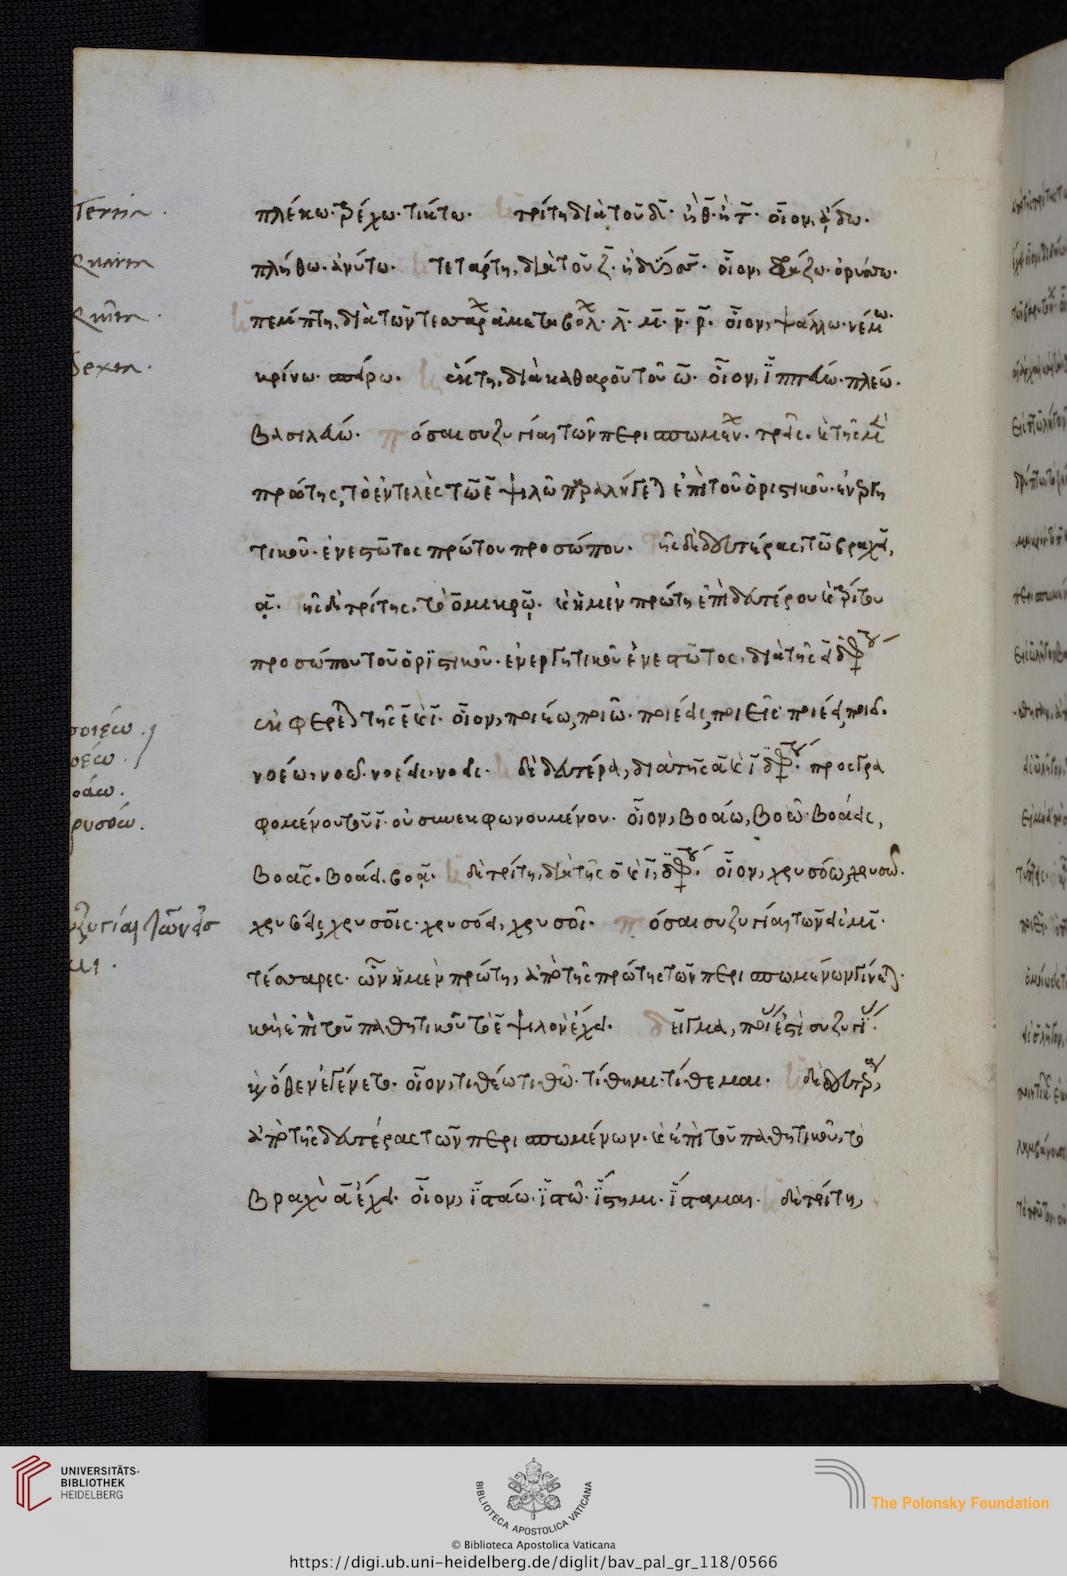 Tertia.
πλέκω. τρέχω. τίκτω. τρίτη διὰ τοῦ δ. ἢ θ. ἢ τ. οἷον, ᾄδω.
Quarta
πλήθω. ἀνύτω. τετάρτη, διὰ τοῦ ζ. ἢ δύο σσ. οἷον, φράζω. ὀρύσσω.
Quinta.
πέμπτη, διὰ τῶν τεσσάρων ἀμεταβόλων λ. μ. ν. ρ. οἷον, ψάλλω. νέμω.
Sexta.
κρίνω. σπείρω. ἕκτη, διὰ καθαροῦ τοῦ ω. οἷον, ἱππεύω. πλέω.
βασιλεύω. πόσαι συζυγίαι τῶν περισπωμένων. τρεῖς. καὶ τῆς μὲν
πρώτης, τὸ ἐντελὲς τῷ ε ψιλῷ παραλήγεται ἐπὶ τοῦ ὁριστικοῦ. ἐνεργη
τικοῦ. ἐνεστῶτος πρώτου προσώπου. τῆς δὲ δευτέρας, τῷ βραχεῖ,
α. τῆς δὲ τρίτης, τῷ ο μικρῷ. καὶ ἡ μὲν πρώτη ἐπὶ δευτέρου καὶ τρίτου
προσώπου τοῦ ὁριστικοῦ. ἐνεργητικοῦ ἐνεστῶτος, διὰ τῆς ει διφθόγγου
ἐκφέρεται τῆς ε καὶ ι. οἷον, ποιέω, ποιῶ. ποιέεις, ποιεῖς ποιέει, ποιεῖ.
ποιέω.
νοέω.
νοέω, νοῶ. νοέεις. νοεῖς. ἡ δὲ δευτέρα, διὰ τῆς α καὶ ι διφθόγγου. προσγρα
βοάω.
χρυσόω.
φομένου τοῦ ι. οὐ συνεκφωνουμένου. οἷον, βοάω, βοῶ. βοάεις,
βοᾷς. βοάει. βοᾷ. ἡ δὲ τρίτη, διὰ τῆς ο καὶ ι, διφθόγγου. οἷον, χρυσόω, χρυσῶ.
συζυγίαι τῶν εἰς
μι.
χρυσόεις, χρυσοῖς. χρυσόει, χρυσοῖ. πόσαι συζυγίαι τῶν εἰς μι.
τέσσαρες. ὧν ἡ μὲν πρώτη, ἀπὸ τῆς πρώτης τῶν περισπωμένων γίνεται.
καὶ ἐπὶ τοῦ παθητικοῦ τὸ ε ψιλὸν ἔχει. δεῖγμα, ποίας ἐστὶ συζυγίας.
καὶ ὅθεν ἐγένετο. οἷον, τιθέω τιθῶ. τίθημι. τίθεμαι. ἡ δὲ δευτέρα,
ἀπὸ τῆς δευτέρας τῶν περισπωμένων. καὶ ἐπὶ τοῦ παθητικοῦ, τὸ
βραχὺ α ἔχει. οἷον, ἱστάω. ἱστῶ. ἵστημι. ἵσταμαι. ἡ δὲ τρίτη,
UNIVERSITÄTS-
BIBLIOTHEK
HEIDELBERG
BIBLIOTECA APOSTOLICA VATICANA
The Polonsky Foundation
© Biblioteca Apostolica Vaticana
https://digi.ub.uni-heidelberg.de/diglit/bav_pal_gr_118/0566